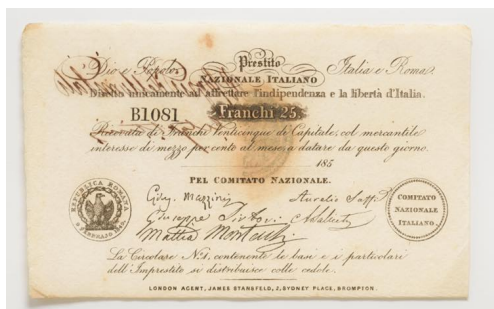 Dio e Popolo Prestito Italia e Roma.
NAZIONALE ITALIANO
Diretto unicamente ad affrettare l'indipendenza e la libertà d'Italia.
B1081 Franchi 25.
Ricevuta di Franchi Venticinque di Capitale, col mercantile
interesse di mezzo per cento al mese, a datare da questo giorno.
185
PEL COMITATO NAZIONALE.
REPUBLICA ROMANA
Mazzini Aurelio Saffi
Giuseppe Sirtori
Mattia Montecchi
COMITATO
NAZIONALE
ITALIANO.
La Circolare N.1, contenente le basi e i particolari
dell'Imprestito si distribuisce colle cedole.
LONDON AGENT, JAMES STANSFELD, 2, SYDNEY PLACE, BROMPTON.